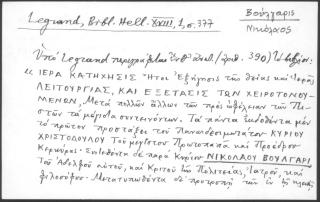 Legrand, Bibl. Hell. XVIII, 1, σ. 377
Βούλγαρις
Νικόλαος
Ὑπὸ Legrand περιγράφεται ἐνθ' ἀνωτ. (ἀριθ. 390) τὸ βιβλίον:
"ΙΕΡΑ ΚΑΤΗΧΗΣΙΣ Ἤτοι Ἐξήγησις τῆς θείας καὶ Ἱερᾶς
ΛΕΙΤΟΥΡΓΙΑΣ, ΚΑΙ ΕΞΕΤΑΣΙΣ ΤΩΝ ΧΕΙΡΟΤΟΝΟΥ-
ΜΕΝΩΝ, Μετὰ πολλῶν ἄλλων τῶν πρὸς ὠφέλειαν τῶν Πι-
στῶν τὰ μέγιστα συντεινόντων. Τὰ πάντα ἐκδοθέντα μὲν
τὸ πρῶτον προστάξει τοῦ Πανοσιολογιωτάτου ΚΥΡΙΟΥ
ΧΡΙΣΤΟΔΟΥΛΟΥ Τοῦ μεγίστου Πρωτοπαπᾶ καὶ Προέδρου
Κερκύρας. Συντεθέντα δὲ παρὰ Κυρίου ΝΙΚΟΛΑΟΥ ΒΟΥΛΓΑΡΙ
Τοῦ Ἀδελφοῦ αὐτοῦ, καὶ Κριτοῦ τῆς Πολιτείας, Ἰατροῦ, καὶ
φιλοσόφου. Μετατυπωθέντα δὲ προτροπῇ τῶν ἐν